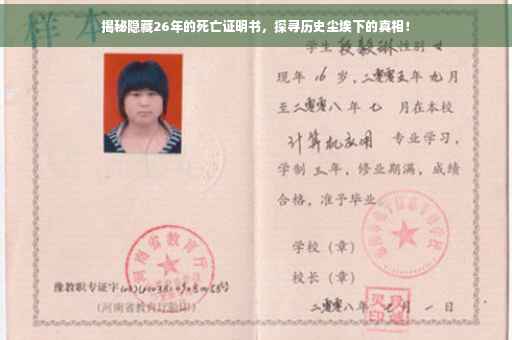 揭秘隐藏26年的死亡证明书，探寻历史尘埃下的真相！
样本
学生 段毅琳 性别 女
现年 16 岁，二零零五年 九月
至二零零八年 七 月在本校
计算机应用 专业学习，
学制 三年，修业期满，成绩
合格，准予毕业
学校（章）
校长（章）
河南省教育厅
豫教职专证字
（河南省教育厅验印）
二零零八年 七 月 一 日